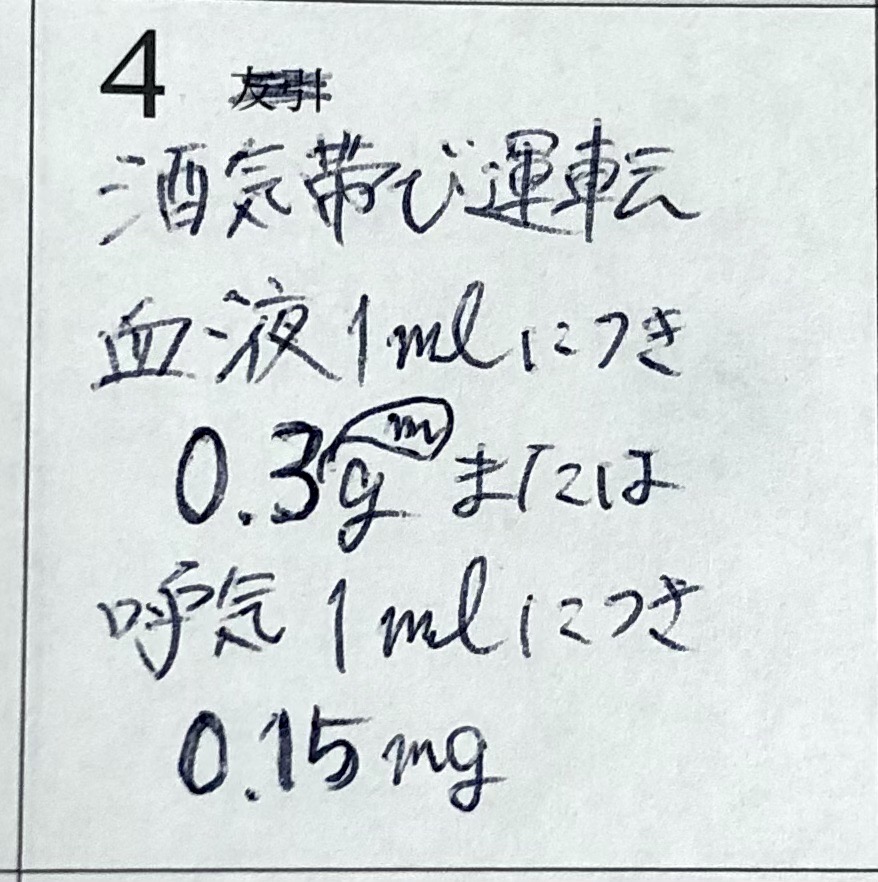 4 友引
酒気帯び運転
血液1mlにつき
0.3mgまたは
呼気1mlにつき
0.15mg